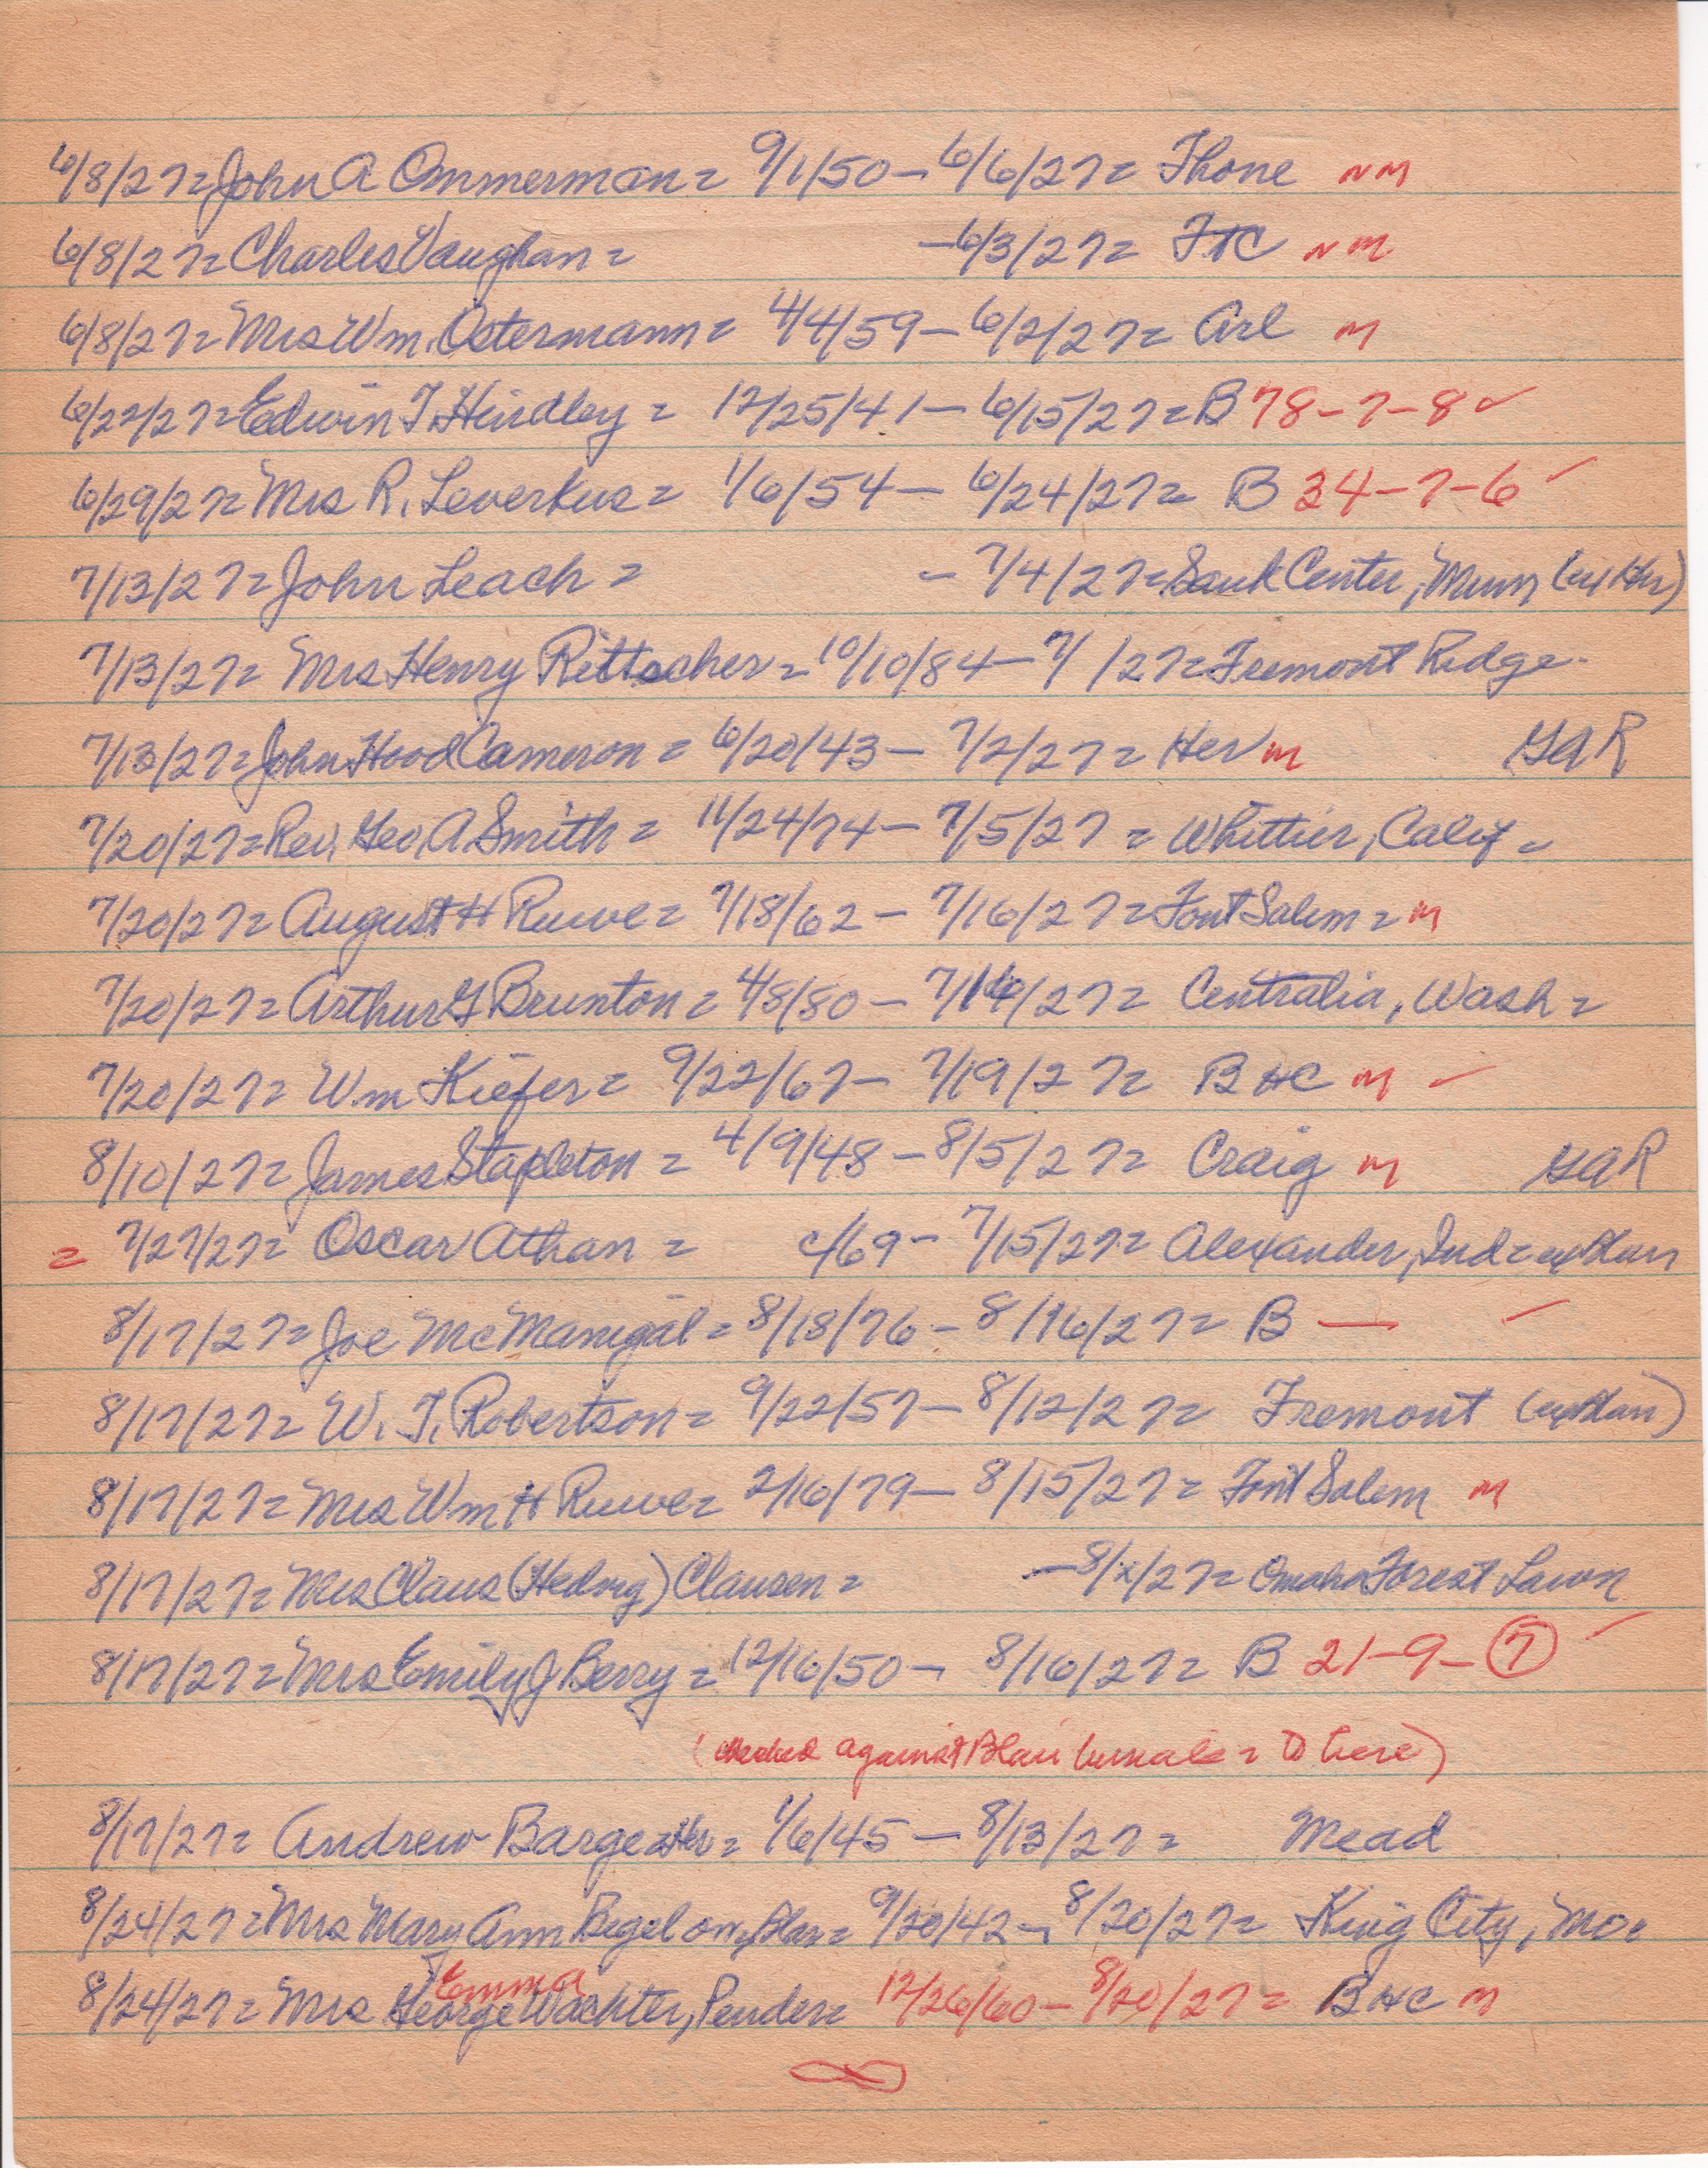 6/8/27= John A Ommerman = 9/1/50 - 6/6/27= Thone NM
6/8/27= Charles Vaughan = - 6/3/27= FTC NM
6/8/27= Mrs Wm. Ostermann = 4/4/59 - 6/2/27= Arl M
6/22/27= Edwin T. Hindley = 12/25/41 - 6/15/27= B 78-7-8 ✓
6/29/27= Mrs R. Leverkus = 1/6/54 - 6/24/27= B 34-7-6 ✓
7/13/27= John Leach = - 7/4/27= Sauk Center, Minn
7/13/27= Mrs Henry Rittscher = 10/10/84 - 7/ /27= Fremont Ridge
7/13/27= John Hood Cameron = 6/20/43 - 7/2/27= Her M GAR
7/20/27= Rev. Geo A Smith = 11/24/74 - 7/5/27 = Whittier, Calif =
7/20/27= August H Ruwe = 7/18/62 - 7/16/27= Font Salem = M
7/20/27= Arthur G Brunton = 4/8/80 - /27= Centralia, Wash =
7/20/27= Wm Kiefer = 9/22/67 - 7/19/27= B HC M ✓
8/10/27= James Stapleton = 4/9/48 - 8/5/27= Craig M GAR
= 7/27/27= Oscar Athan = c/69 - 7/15/27= Alexander, Ind =
8/17/27= Joe McManigal = 8/18/76 - 8/16/27= B — ✓
8/17/27= W. T. Robertson = 9/22/57 - 8/12/27= Fremont
8/17/27= Mrs Wm H Ruwe = 2/16/79 - 8/15/27= Font Salem M
8/17/27= Mrs Claus (Hedwig) Clausen = - 8/x/27= Omaha Forest Lawn
8/17/27= Mrs Emily J Berry = 12/16/50 - 8/16/27= B 21-9-7 ✓
(checked against Blair burials = to here)
8/17/27= Andrew Bargeather = 1/6/45 - 8/13/27= Mead
8/24/27= Mrs Mary Ann Bigelow, = 9/20/42 - 8/20/27= King City, Mo.
Emma
8/24/27= Mrs George Wachter, Pender = 12/26/60 - 8/20/27= B HC M